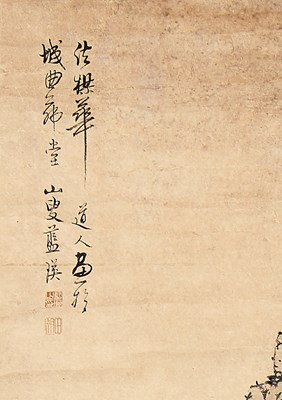 法楳華道人畫於
城曲茅堂山叟藍瑛